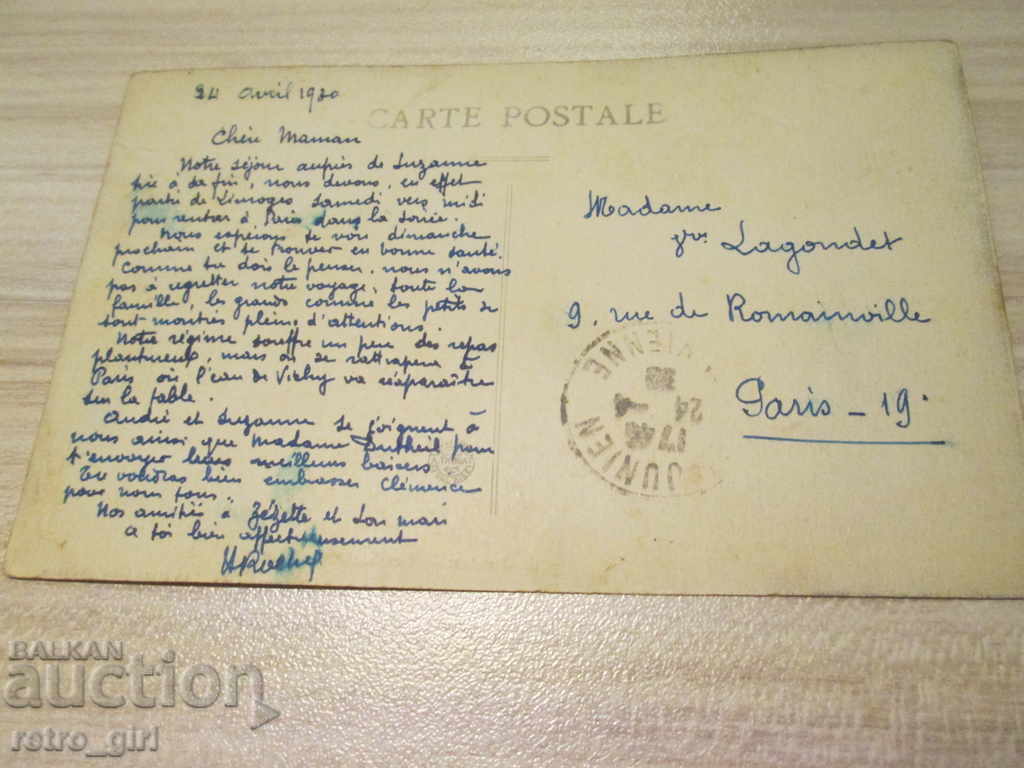 24 avril 1930
CARTE POSTALE
Chère Maman
Notre séjour auprès de Suzanne
tire à sa fin, nous devons, en effet
partir de Limoges samedi vers midi
pour rentrer à Paris dans la soirée.
Nous espérons te voir dimanche
prochain et te trouver en bonne santé.
Comme tu dois le penser, nous n'avons
pas à regretter notre voyage, toute la
famille, les grands comme les petits se
sont montrés pleins d'attentions.
Notre régime souffre un peu des repas
plantureux, mais on se rattrapera à
Paris où l'eau de Vichy va réaparaître
sur la table.
André et Suzanne se joignent à
nous ainsi que Madame Dutheil pour
t'envoyer leurs meilleurs baisers
Tu voudras bien embrasser Clémence
pour nous tous.
Nos amitiés à Zézette et son mari
a toi bien affectueusement
HRoche
Madame
Vve Lagondet
9, rue de Romainville
Paris - 19e
JUNIEN
VIENNE
17 45
24 - 4
30
BALKAN
auction
retro_girl